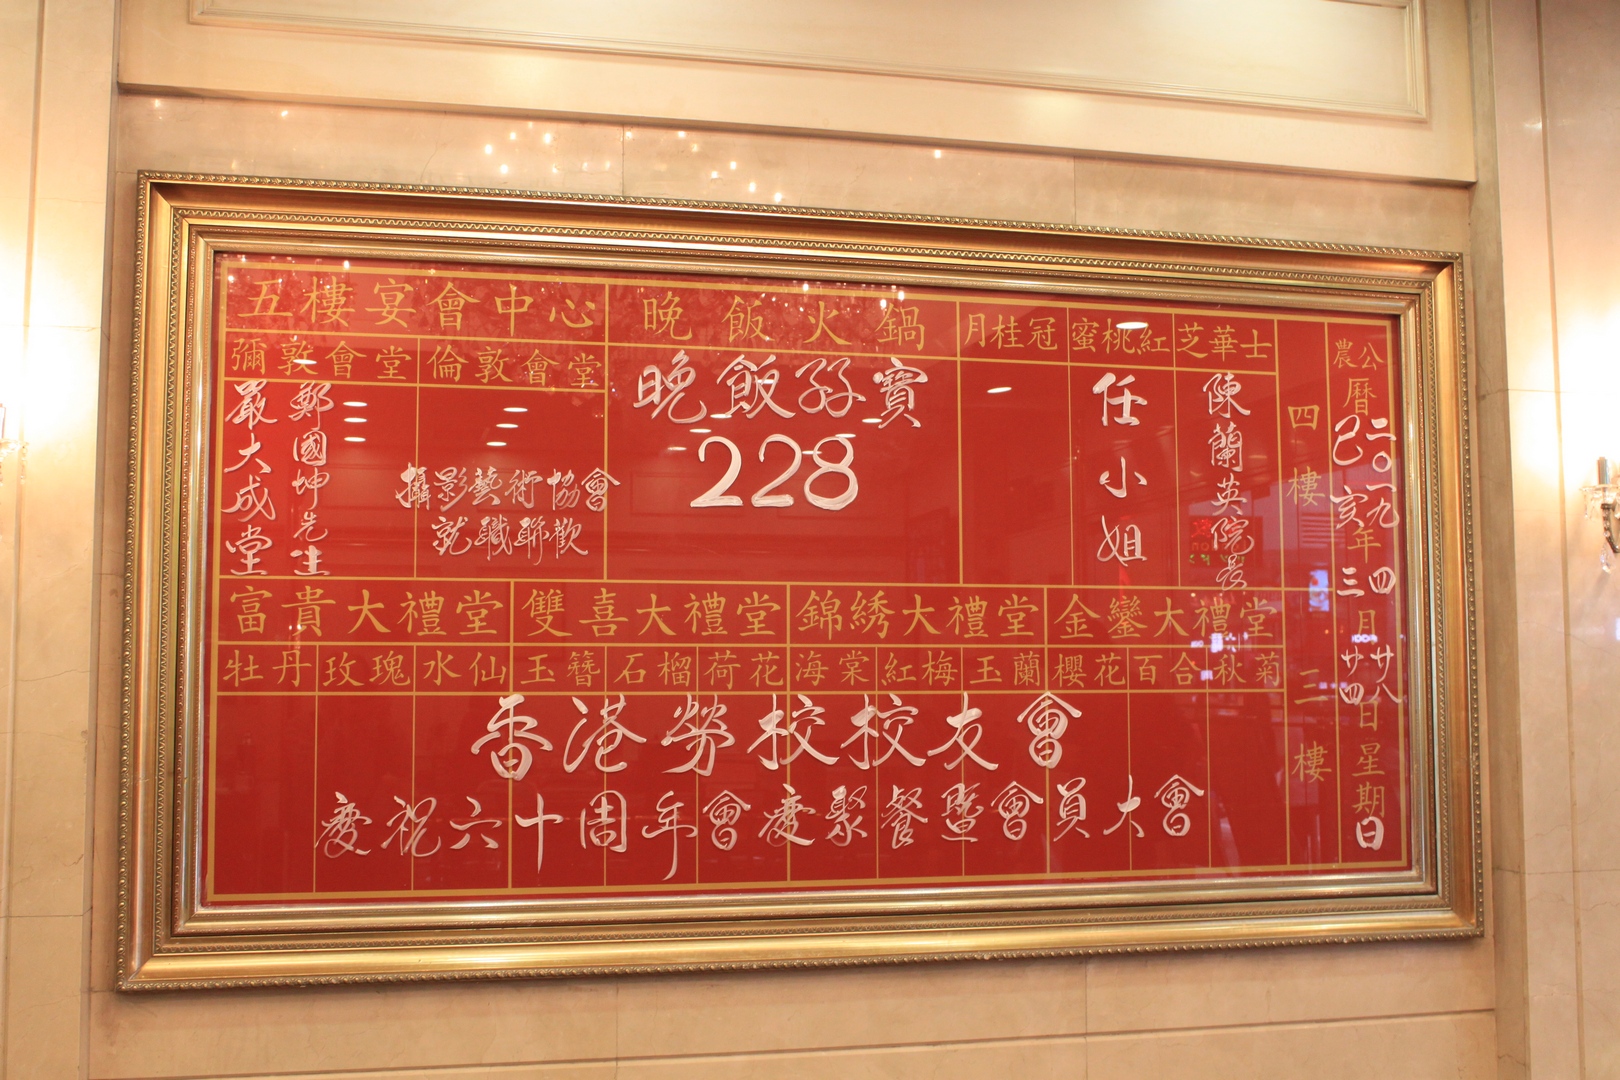 五樓宴會中心
晚飯火鍋
月桂冠
蜜桃紅
芝華士
彌敦會堂
倫敦會堂
鄭國坤先生
嚴大成堂
攝影藝術協會
就職聯歡
晚飯孖寶
228
任小姐
陳蘭英院長
四樓
公曆二〇一九年四月廿八日星期日
農曆己亥年三月廿四日
富貴大禮堂
雙喜大禮堂
錦綉大禮堂
金鑾大禮堂
牡丹
玫瑰
水仙
玉簪
石榴
荷花
海棠
紅梅
玉蘭
櫻花
百合
秋菊
三樓
香港勞校校友會
慶祝六十周年會慶聚餐暨會員大會